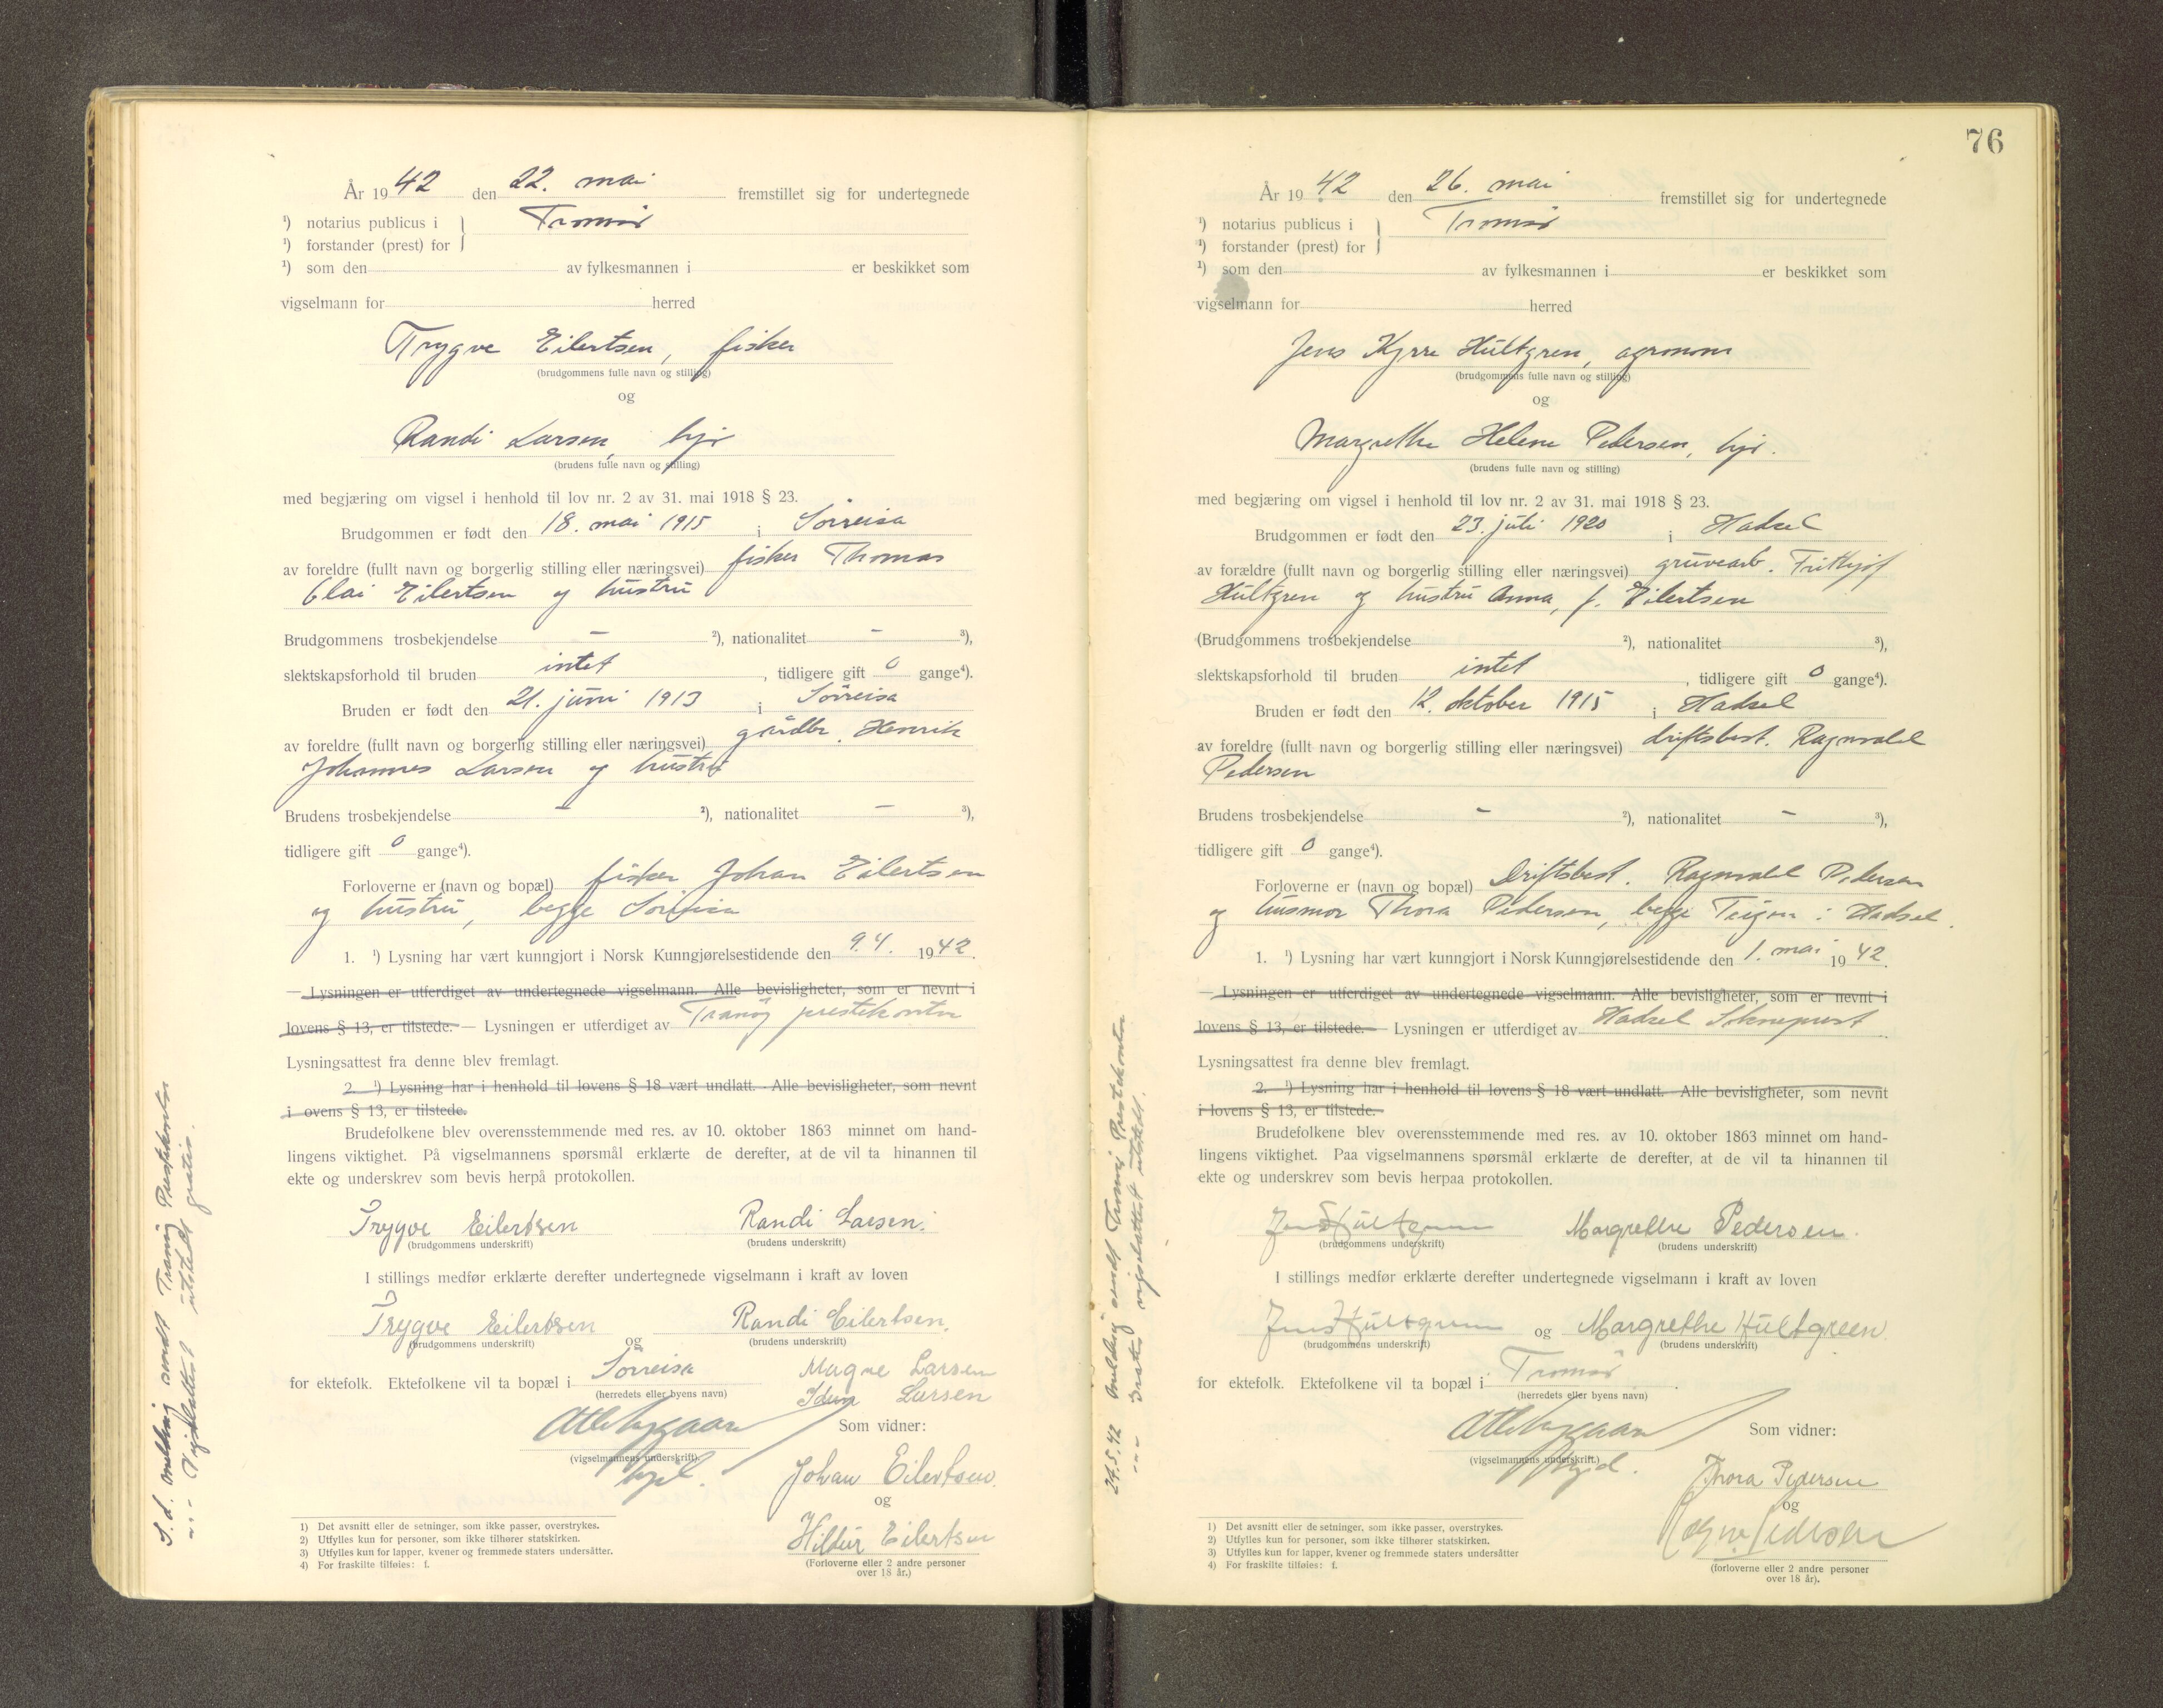 År 1942 den 22. mai fremstillet sig for undertegnede
¹) notarius publicus i } Tromsø
¹) forstander (prest) for
¹) som den av fylkesmannen i er beskikket som
vigselmann for herred
Trygve Eilertsen, fisker
(brudgommens fulle navn og stilling)
og
Randi Larsen, hjv
(brudens fulle navn og stilling)
med begjæring om vigsel i henhold til lov nr. 2 av 31. mai 1918 § 23.
Brudgommen er født den 18. mai 1915 i Sørreisa
av foreldre (fullt navn og borgerlig stilling eller næringsvei) fisker Thomas
Olai Eilertsen og hustru
Brudgommens trosbekjendelse — ²), nationalitet — ³),
slektskapsforhold til bruden intet, tidligere gift 0 gange⁴).
Bruden er født den 21. juni 1913 i Sørreisa
av foreldre (fullt navn og borgerlig stilling eller næringsvei) gårdbr. Henrik
Johannes Larsen og hustru
Brudens trosbekjendelse — ²), nationalitet — ³),
tidligere gift 0 gange⁴).
Forloverne er (navn og bopæl) fisker Johan Eilertsen
og hustru, begge Sørreisa
1. ¹) Lysning har vært kunngjort i Norsk Kunngjørelsestidende den 9.4. 1942.
— Lysningen er utferdiget av undertegnede vigselmann. Alle bevisligheter, som er nevnt i
lovens § 13, er tilstede. — Lysningen er utferdiget av Tranøy prestekontor
Lysningsattest fra denne blev fremlagt.
2. ¹) Lysning har i henhold til lovens § 18 vært undlatt. Alle bevisligheter, som nevnt
i ovens § 13, er tilstede.
Brudefolkene blev overensstemmende med res. av 10. oktober 1863 minnet om hand-
lingens viktighet. På vigselmannens spørsmål erklærte de derefter, at de vil ta hinannen til
ekte og underskrev som bevis herpå protokollen.
Trygve Eilertsen Randi Larsen.
(brudgommens underskrift) (brudens underskrift)
I stillings medfør erklærte derefter undertegnede vigselmann i kraft av loven
Trygve Eilertsen og Randi Eilertsen.
(brudgommens underskrift) (brudens underskrift)
for ektefolk. Ektefolkene vil ta bopæl i Sørreisa Magne Larsen
(herredets eller byens navn) Larsen
Som vidner:
(vigselmannens underskrift)
Johan Eilertsen.
og
Hildur Eilertsen
(Forloverne eller 2 andre personer
over 18 år.)
1) Det avsnitt eller de setninger, som ikke passer, overstrykes.
2) Utfylles kun for personer, som ikke tilhører statskirken.
3) Utfylles kun for lapper, kvener og fremmede staters undersåtter.
4) For fraskilte tilføies: f.
S.d. melding sendt Tranøy Prestekontor
— " — Vigselattest utstedt gratis.
76
År 1942 den 26. mai fremstillet sig for undertegnede
¹) notarius publicus i } Tromsø
¹) forstander (prest) for
¹) som den av fylkesmannen i er beskikket som
vigselmann for herred
Jens Kyrre Hultgren, agronom
(brudgommens fulle navn og stilling)
og
Margrethe Helene Pedersen, hjv.
(brudens fulle navn og stilling)
med begjæring om vigsel i henhold til lov nr. 2 av 31. mai 1918 § 23.
Brudgommen er født den 23. juli 1920 i Hadsel
av forældre (fullt navn og borgerlig stilling eller næringsvei) gruvearb. Frithjof
Hultgren og hustru Anna, f. Eilertsen
(Brudgommens trosbekjendelse ²), nationalitet ³),
slektskapsforhold til bruden intet, tidligere gift 0 gange⁴).
Bruden er født den 12. oktober 1915 i Hadsel
av foreldre (fullt navn og borgerlig stilling eller næringsvei) driftsbest. Ragnvald
Pedersen
Brudens trosbekjendelse — ²), nationalitet — ³),
tidligere gift 0 gange⁴).
Forloverne er (navn og bopæl) Driftsbest. Ragnvald Pedersen
og husmor Thora Pedersen, begge Teigen i Hadsel.
1. ¹) Lysning har vært kunngjort i Norsk Kunngjørelsestidende den 1. mai 1942.
— Lysningen er utferdiget av undertegnede vigselmann. Alle bevisligheter, som er nevnt i
lovens § 13, er tilstede. — Lysningen er utferdiget av Hadsel Sokneprest
Lysningsattest fra denne blev fremlagt.
2. ¹) Lysning har i henhold til lovens § 18 vært undlatt. Alle bevisligheter, som nevnt
i lovens § 13, er tilstede.
Brudefolkene blev overensstemmende med res. av 10. oktober 1863 minnet om hand-
lingens viktighet. Paa vigselmannens spørsmål erklærte de derefter, at de vil ta hinannen til
ekte og underskrev som bevis herpaa protokollen.
Jens Hultgren Margrethe Pedersen.
(brudgommens underskrift) (brudens underskrift)
I stillings medfør erklærte derefter undertegnede vigselmann i kraft av loven
Jens Hultgren og Margrethe Hultgreen
(brudgommens underskrift) (brudens underskrift)
for ektefolk. Ektefolkene vil ta bopæl i Tromsø.
(herredets eller byens navn)
Som vidner:
(vigselmannens underskrift.)
Thora Pedersen
og
Pedersen
(forloverne eller 2 andre personer
over 18 år).
1) Det avsnitt eller de setninger, som ikke passer, overstrykes.
2) Utfylles kun for personer, som ikke tilhører statskirken.
3) Utfylles kun for lapper, kvener og fremmede staters undersåtter
4) For fraskilte tilføies: f.
27.5.42 melding sendt Tromsø Prestekontor
— " — vigselattest utstedt.